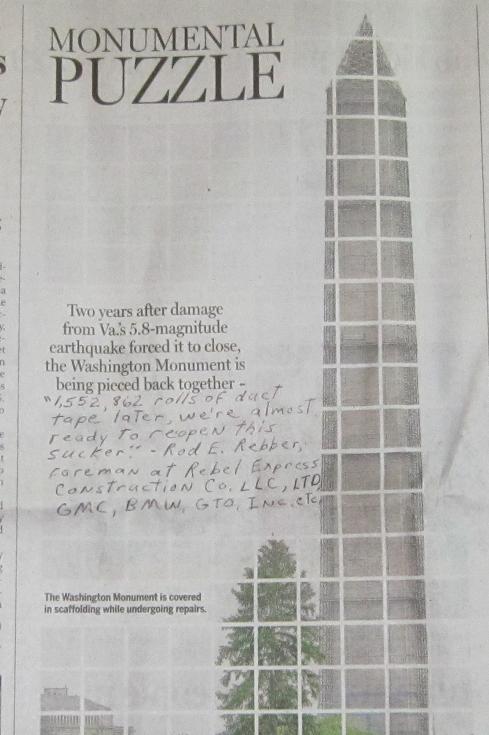 MONUMENTAL
PUZZLE
Two years after damage
from Va.'s 5.8-magnitude
earthquake forced it to close,
the Washington Monument is
being pieced back together -
"1,552,862 rolls of duct
tape later, we're almost
ready to reopen this
sucker" - Rod E. Rebber,
foreman at Rebel Express
Construction Co. LLC, LTD,
GMC, BMW, GTO, Inc. etc
The Washington Monument is covered
in scaffolding while undergoing repairs.